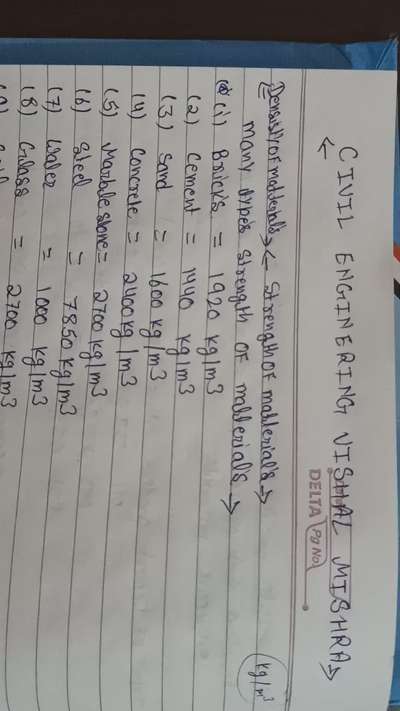 ← CIVIL ENGINERING VISHAL MISHRA →
DELTA Pg No
Density of matterials → ← Strength of matterials →
many types strength of matterials →
kg/m³
(1) Bricks = 1920 kg/m3
(2) Cement = 1440 kg/m3
(3) Sand = 1600 kg/m3
(4) Concrete = 2400 kg/m3
(5) Marble stone = 2700 kg/m3
(6) Steel = 7850 kg/m3
(7) Water = 1000 kg/m3
(8) Glass = 2700 kg/m3